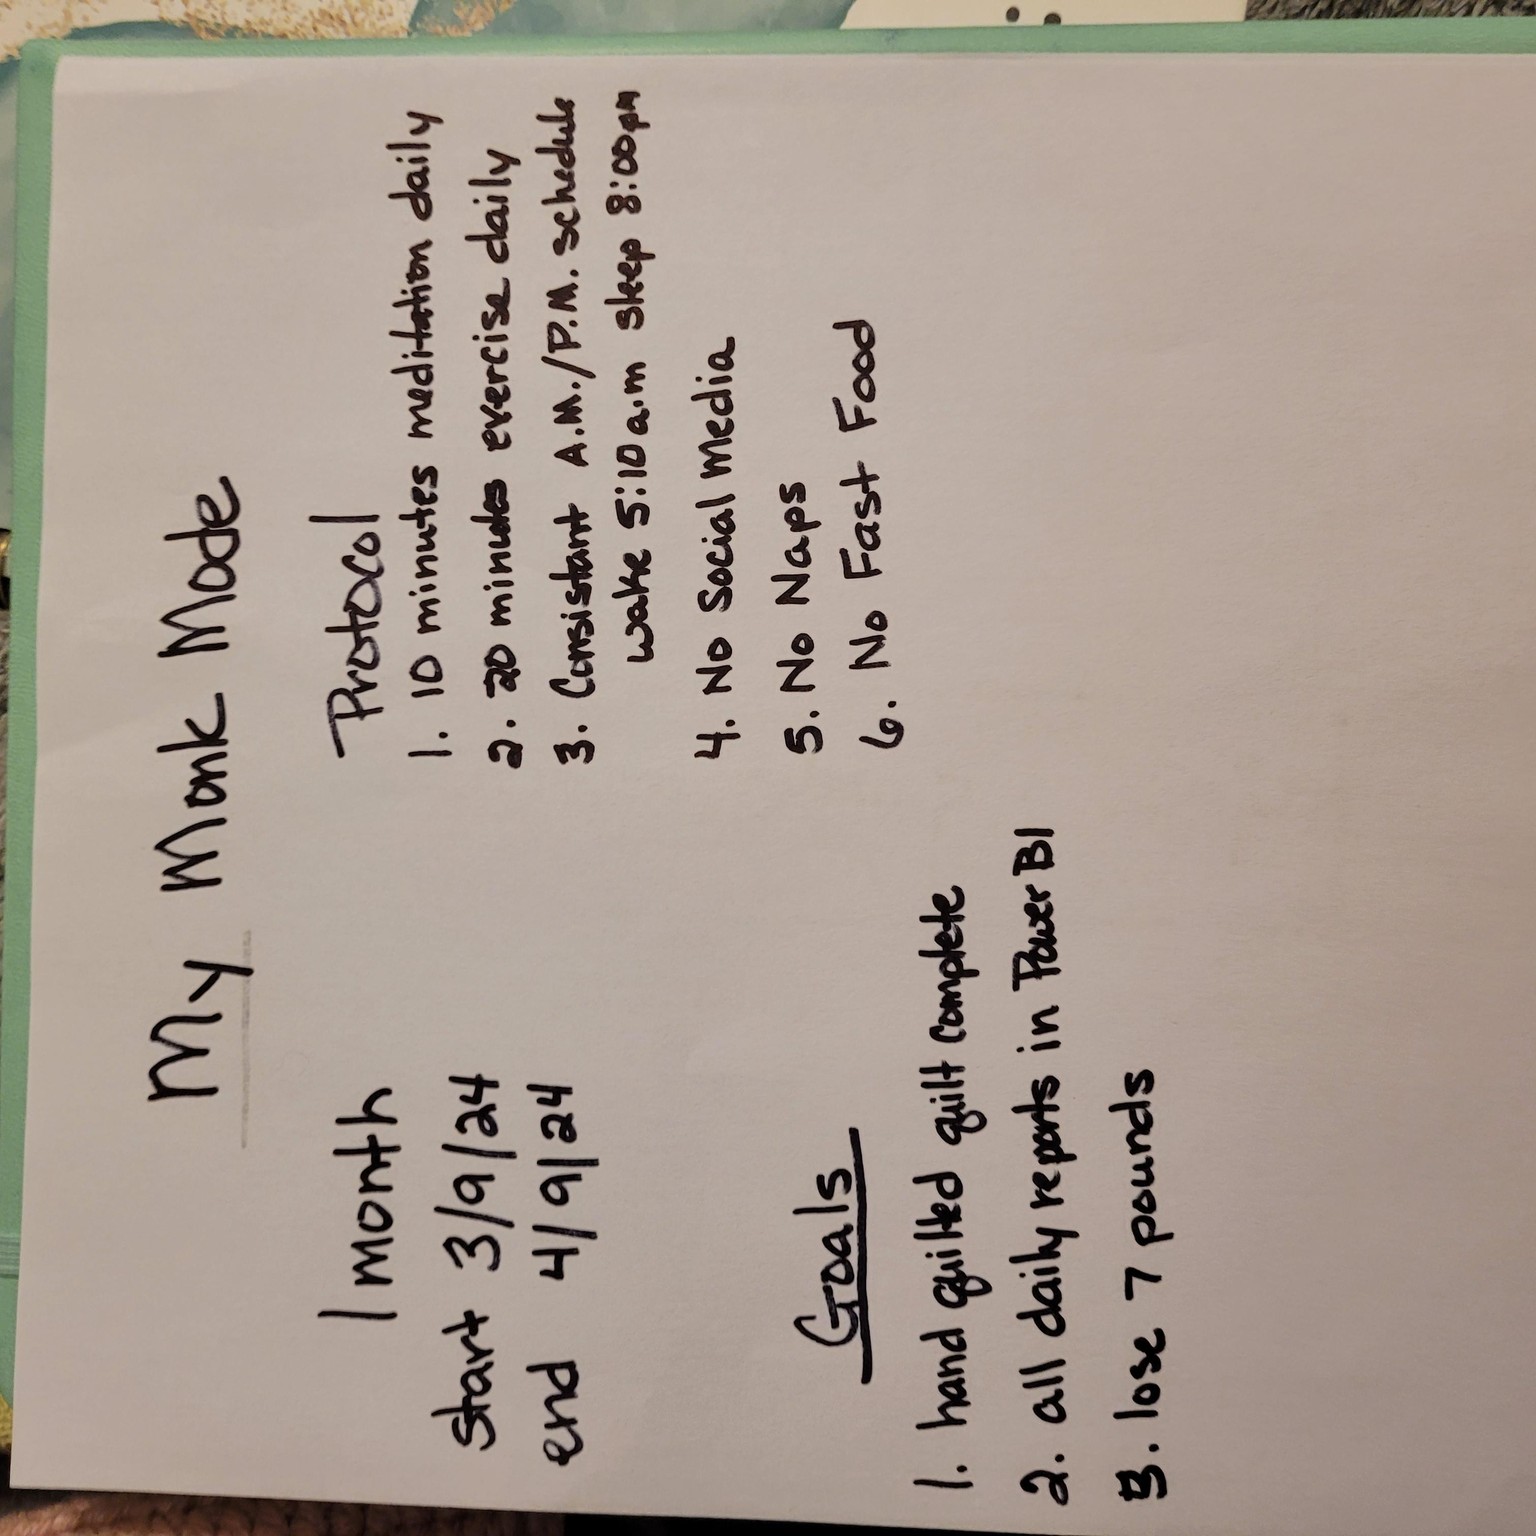 My Monk Mode
1 month
start 3/9/24
end 4/9/24
Protocol
1. 10 minutes meditation daily
2. 20 minutes exercise daily
3. Consistant A.M./P.M. schedule
wake 5:10 a.m sleep 8:00pm
4. No Social Media
5. No Naps
6. No Fast Food
Goals
1. hand quilted quilt complete
2. all daily reports in Power BI
3. lose 7 pounds